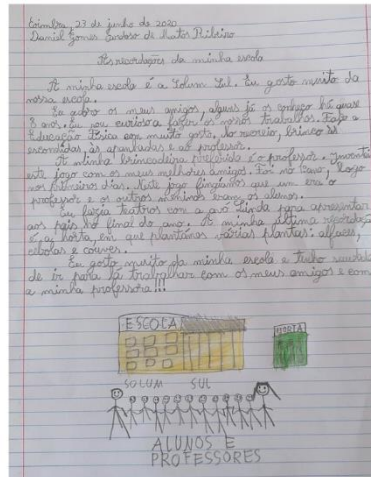 Coimbra, 23 de junho de 2020
Daniel Gomes Cardoso de Matos Ribeiro
As recordações da minha escola
A minha escola é a Solum Sul. Eu gosto muito da
nossa escola.
Eu adoro os meus amigos, alguns já os conheço há quase
8 anos. Eu sou curioso a fazer os nossos trabalhos. Faço a
Educação Física com muito gosto, do recreio, brinco às
escondidas, às apanhadas e ao professor.
A minha brincadeira preferida é o professor. Inventei
este jogo com os meus melhores amigos. Foi no 1º ano, logo
nos primeiros dias. Neste jogo fingíamos que um era o
professor e os outros meninos eram os alunos.
Eu fazia teatros com a avó Linda para apresentar
aos pais no final do ano. A minha última recordação
é a horta, em que plantámos várias plantas: alfaces,
cebolas e couves.
Eu gosto muito da minha escola e tenho saudades
de ir para lá trabalhar com os meus amigos e com
a minha professora!!!
ESCOLA
HORTA
SOLUM SUL
ALUNOS E
PROFESSORES